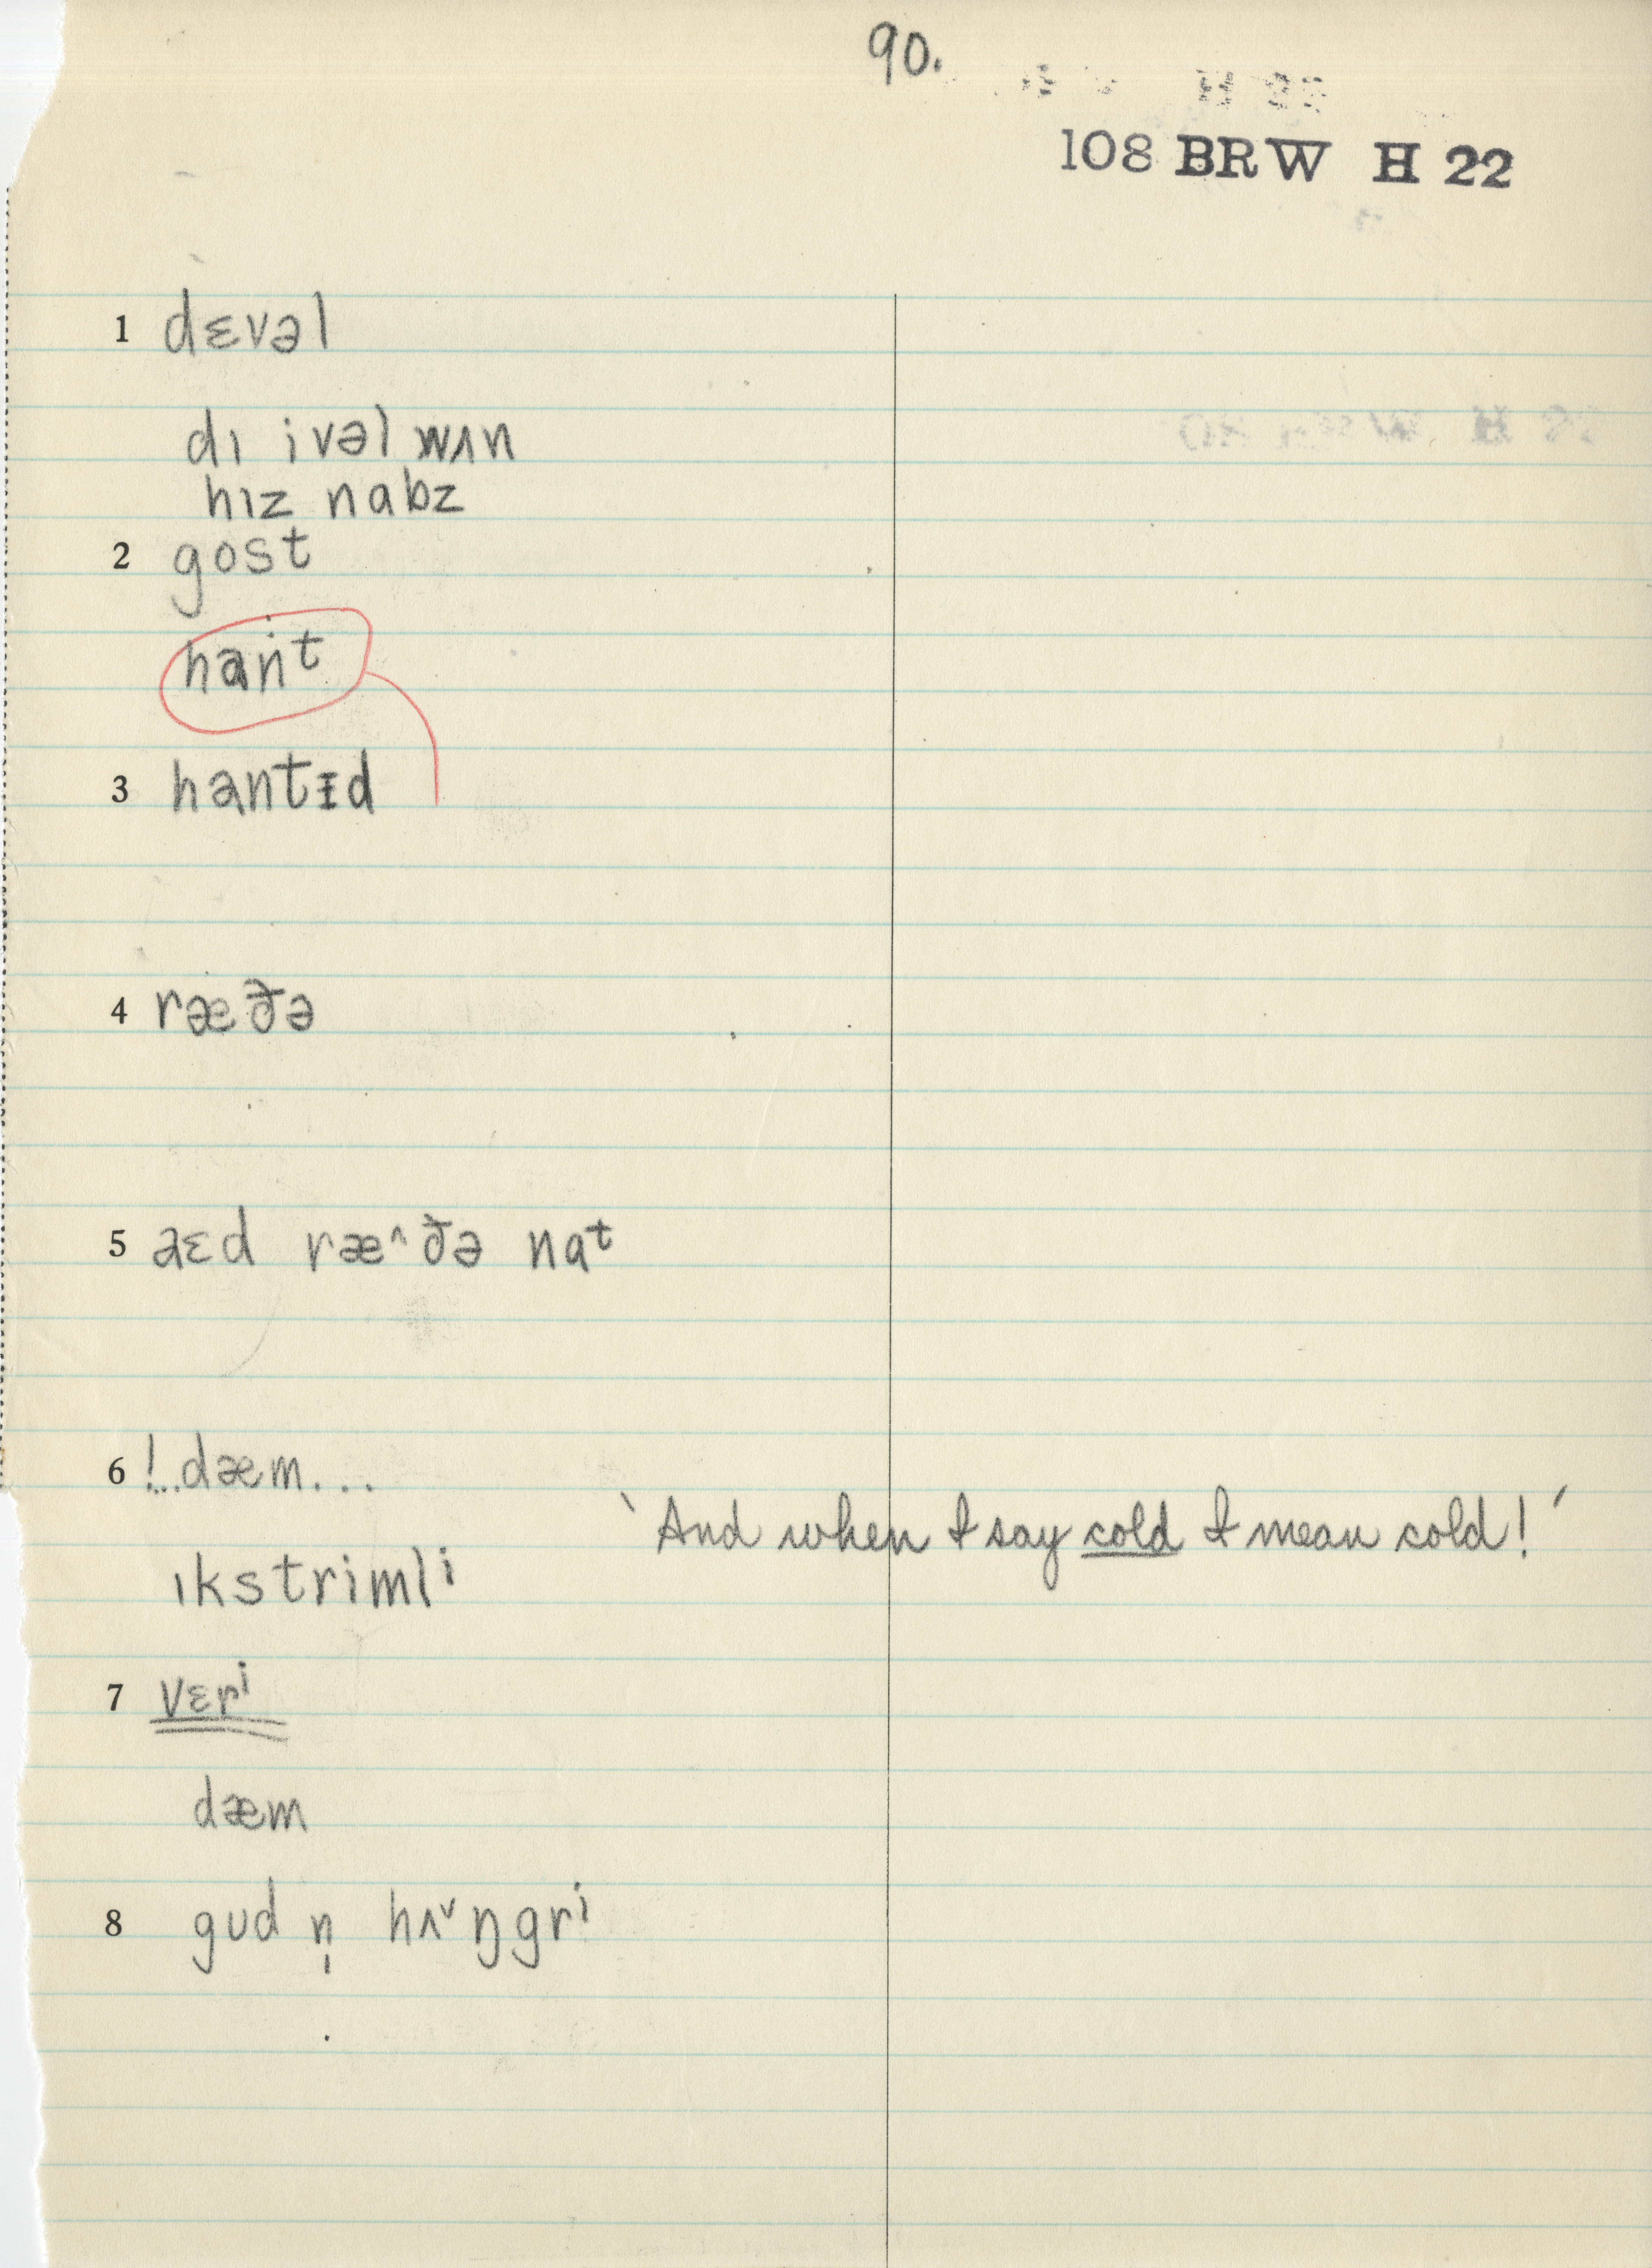 90.
108 BRW H 22
1 dɛvəl
dɪ ivəl wʌn
hɪz nabz
2 gost
hant
3 hantɪd
4 ræðə
5 aɛd ræ^ðə naᵗ
6 !...dæm...
`And when I say cold I mean cold!´
ɪkstrimlⁱ
7 vɛrⁱ
dæm
8 gud n̩ hʌ˅ŋgrⁱ